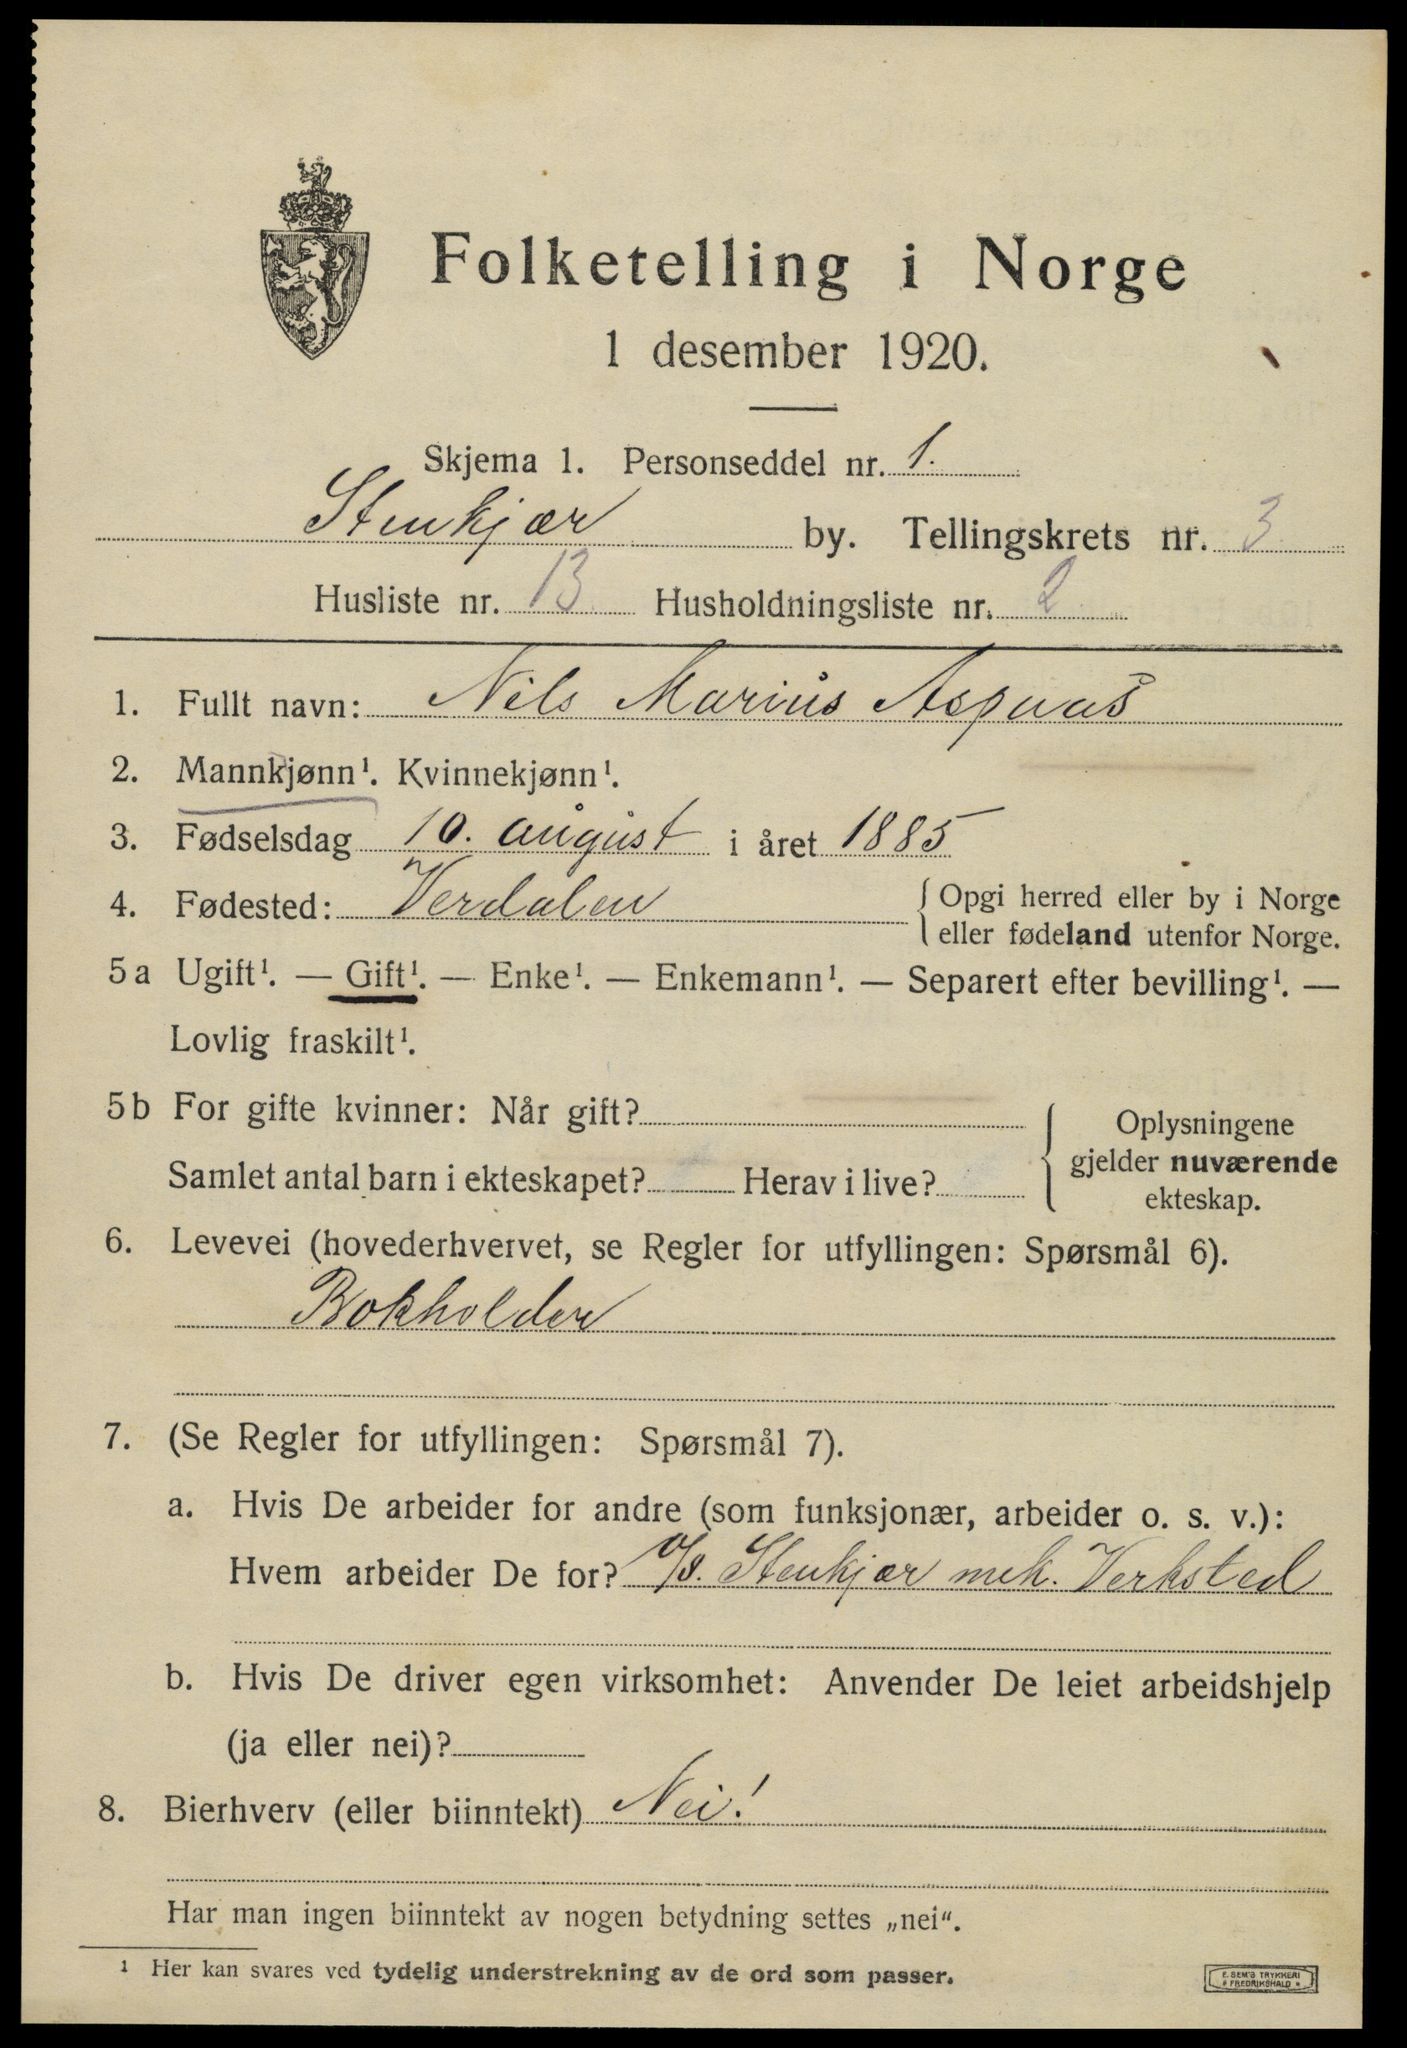 Folketelling i Norge
1 desember 1920.
Skjema 1. Personseddel nr. 1.
Stenkjær by. Tellingskrets nr. 3
Husliste nr. 13 Husholdningsliste nr. 2
1. Fullt navn: Nils Marius Aspaas
2. Mannkjønn¹. Kvinnekjønn¹.
3. Fødselsdag 10. august i året 1885
4. Fødested: Verdalen { Opgi herred eller by i Norge
eller fødeland utenfor Norge.
5a Ugift¹. — Gift¹. — Enke¹. — Enkemann¹. — Separert efter bevilling¹. —
Lovlig fraskilt¹.
5b For gifte kvinner: Når gift?
Samlet antal barn i ekteskapet? Herav i live?
{ Oplysningene
gjelder nuværende
ekteskap.
6. Levevei (hovederhvervet, se Regler for utfyllingen: Spørsmål 6).
Bokholder
7. (Se Regler for utfyllingen: Spørsmål 7).
a. Hvis De arbeider for andre (som funksjonær, arbeider o. s. v.):
Hvem arbeider De for? A/S. Stenkjær mek. Verksted
b. Hvis De driver egen virksomhet: Anvender De leiet arbeidshjelp
(ja eller nei)?
8. Bierhverv (eller biinntekt) Nei!
Har man ingen biinntekt av nogen betydning settes „nei“.
¹ Her kan svares ved tydelig understrekning av de ord som passer.
E. SEM'S TRYKKERI
* FREDRIKSHALD *